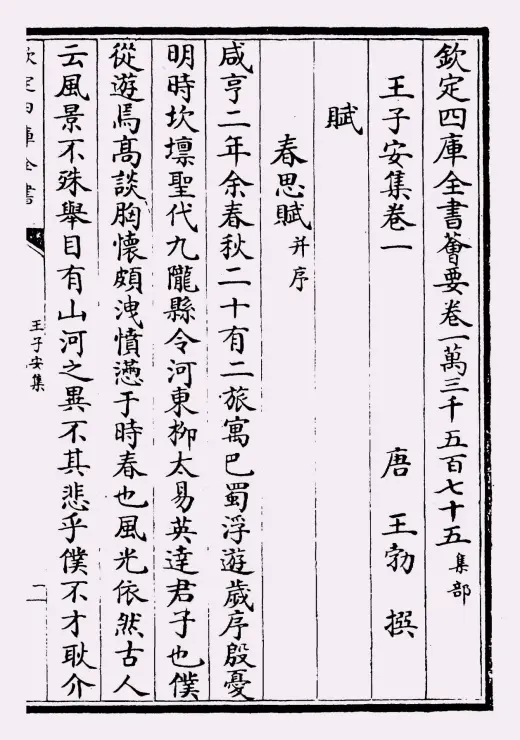 欽定四庫全書薈要卷一萬三千五百七十五集部
王子安集卷一
唐 王勃 撰
賦
春思賦并序
咸亨二年余春秋二十有二旅寓巴蜀浮遊歲序殷憂
明時坎壈聖代九隴縣令河東柳太易英達君子也僕
從遊焉高談胸懷頗洩憤懣于時春也風光依然古人
云風景不殊舉目有山河之異不其悲乎僕不才耿介
欽定四庫全書
王子安集
二